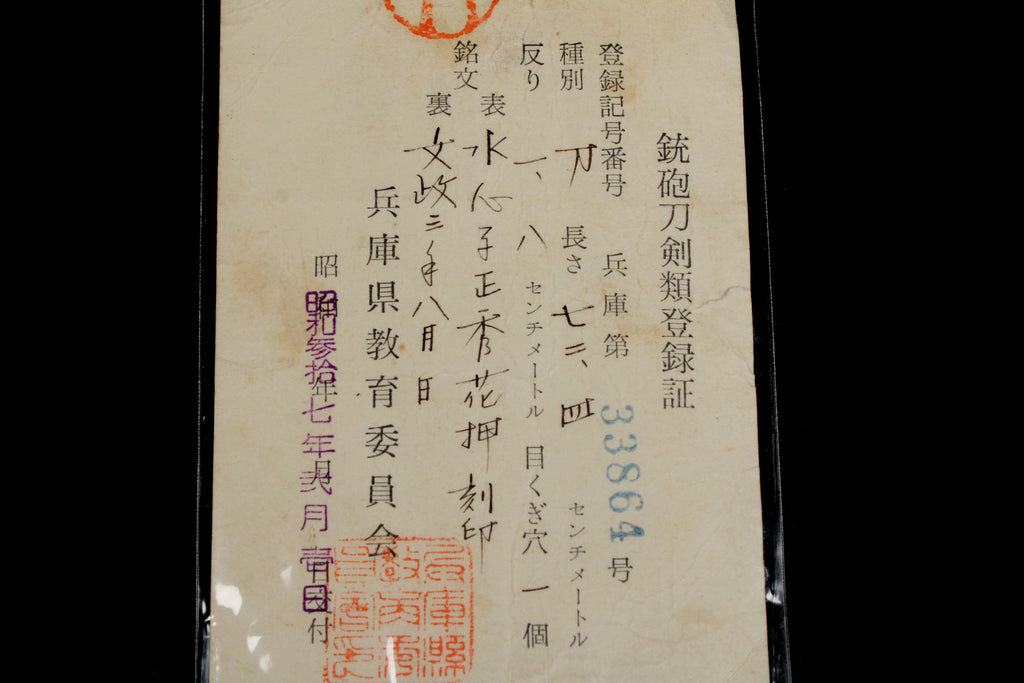 銃砲刀剣類登録証
登録記号番号 兵庫第 33864 号
種別 刀 長さ 七二、四 センチメートル
反り 一、八 センチメートル 目くぎ穴 一 個
銘文 表 水心子正秀花押 刻印
裏 文政三年八月 日
兵庫県教育委員会
昭和 年 月 日交付
昭和参拾七年弐月壱日